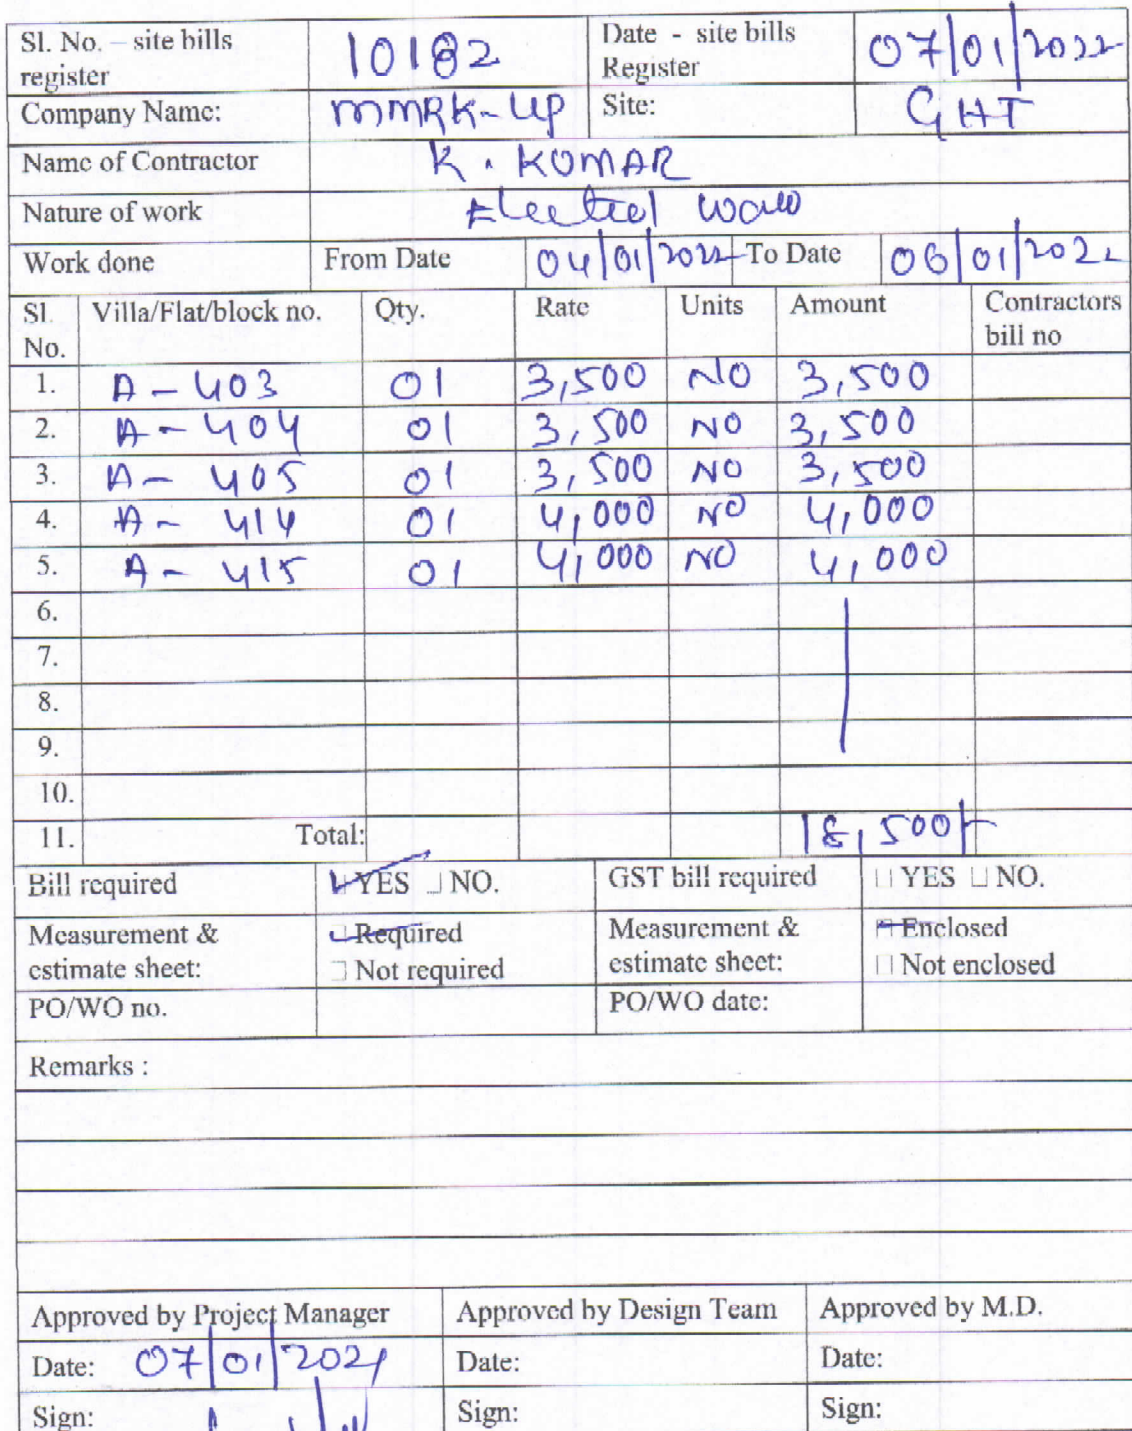 Sl. No. – site bills register 10182 Date - site bills Register 07/01/2022
Company Name: MMRK-UP Site: GHT
Name of Contractor K. KUMAR
Nature of work
Work done From Date 04/01/2022 To Date 06/01/2022
Sl. No. Villa/Flat/block no. Qty. Rate Units Amount Contractors bill no
1. A - 403 01 3,500 NO 3,500
2. A - 404 01 3,500 NO 3,500
3. A - 405 01 3,500 NO 3,500
4. A - 414 01 4,000 NO 4,000
5. A - 415 01 4,000 NO 4,000
6.
7.
8.
9.
10.
11. Total: 18,500/-
Bill required YES NO. GST bill required YES NO.
Measurement & estimate sheet: Required Not required Measurement & estimate sheet: Enclosed Not enclosed
PO/WO no. PO/WO date:
Remarks :
Approved by Project Manager Approved by Design Team Approved by M.D.
Date: 07/01/2021 Date: Date:
Sign: Sign: Sign: